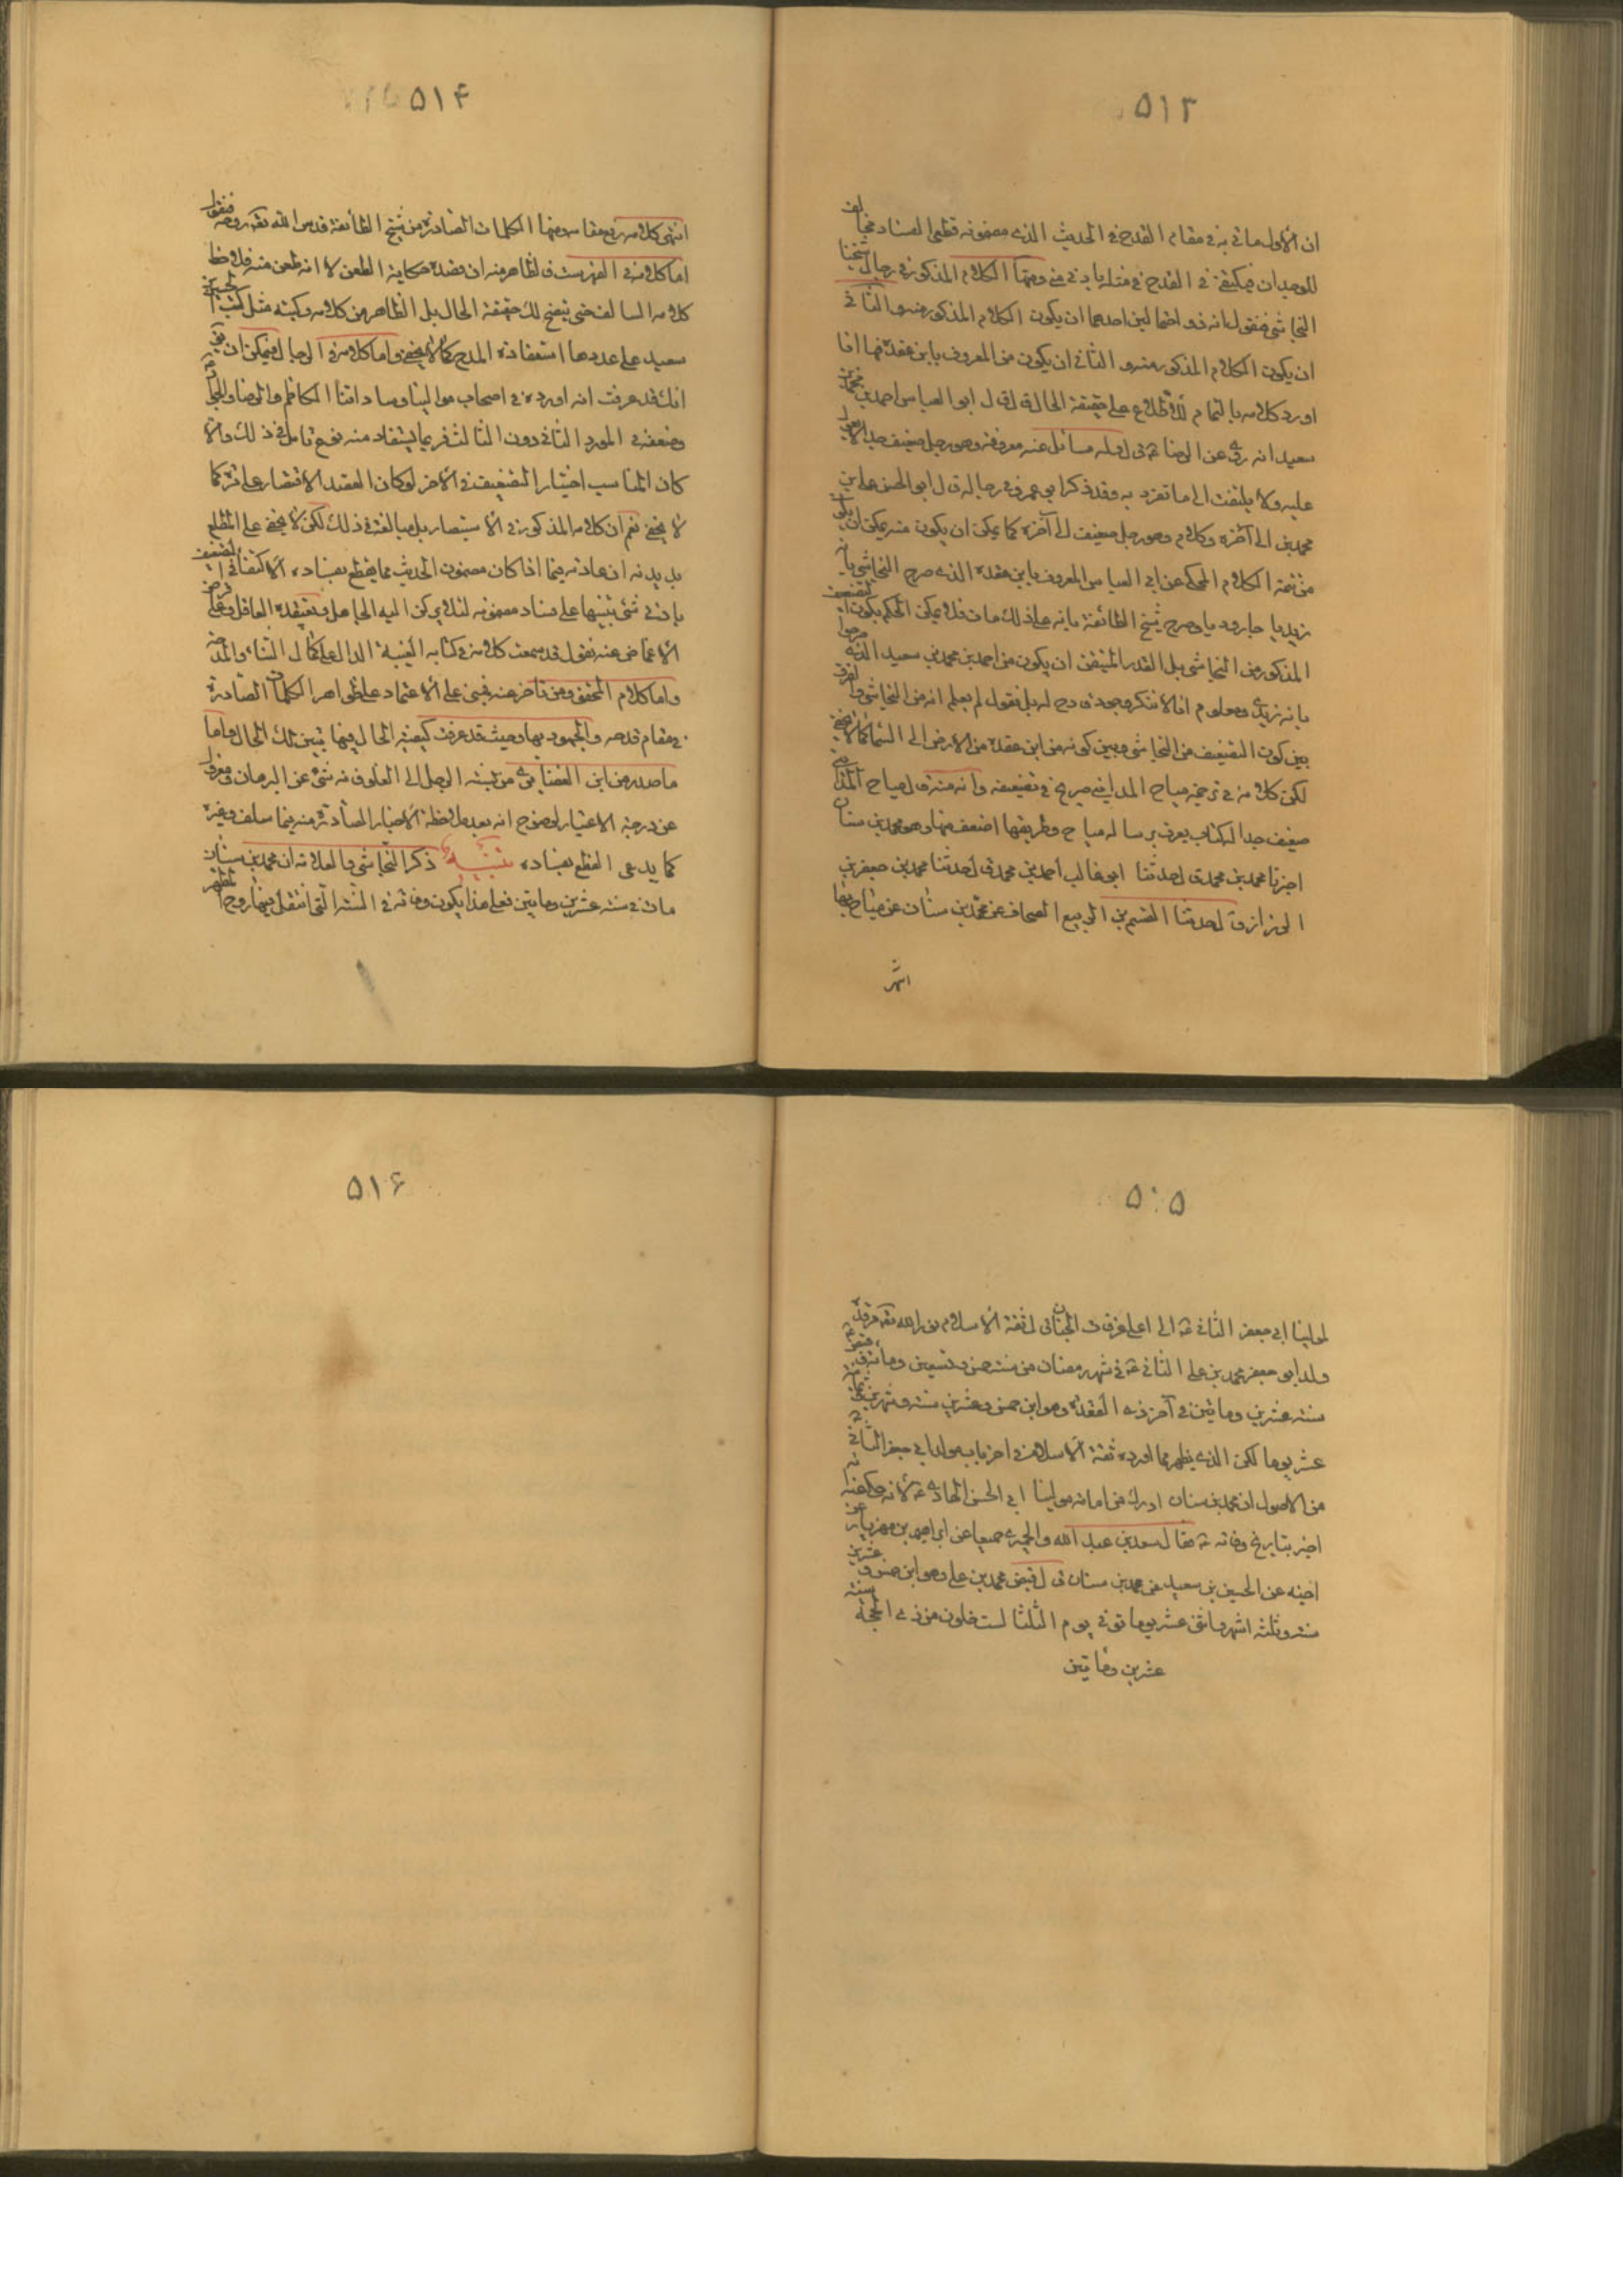 ۵۱۳
ان الاول ما في به في مقام القدح في الحديث الذي مضمونه قطعي الفساد مخالف
للوجدان فيكتفي في القدح في مثله بادنى شيء ومنها الكلام المذكور في رجال شيخنا
النجاشي فنقول انه ذو احتمالين احدهما ان يكون الكلام المذكور منه والثاني
ان يكون الكلام المذكور منه والثاني ان يكون من المعروف بابن عقدة فها انا
اورد كلامه بالتمام للاطلاع على حقيقة الحال قال قال ابو العباس احمد بن محمد بن
سعيد انه روى عن الرضا ع قال وله مسائل عنه معروفة وهو رجل ضعيف جدا لا يعول
عليه ولا يلتفت الى ما تفرد به وقد ذكر ابو عمرو في رجاله قال ابو الحسن علي بن
محمد بن الى آخره وكلام وهو رجل ضعيف الى آخره كما يمكن ان يكون منه يمكن ان يكون
من تتمة الكلام المحكي عن ابي العباس المعروف بابن عقدة الذي صرح النجاشي بانه
زيديا جاروديا وصرح شيخ الطائفة بانه على ذلك مات فلا يمكن الحكم بكون التضعيف
المذكور من النجاشي بل القدر المتيقن ان يكون من احمد بن محمد بن سعيد الذي صرحوا
بانه زيدي ومعلوم انا لا ننكر وجود قادح له بل نقول لم يعلم انه من النجاشي والفرق
بين كون التضعيف من النجاشي وبين كونه من ابن عقدة من الارض الى السماء كما لا يخفى
لكن كلامه في ترجمة مياح المدايني صريح في تضعيفه وانه منه قال مياح المدايني
ضعيف جدا له كتاب يعرف برسالة مياح وطريقها اضعف منها وهو محمد بن سنان
اخبرنا محمد بن محمد قال حدثنا ابو غالب احمد بن محمد قال حدثنا محمد بن جعفر بن
الرزاز قال حدثنا القسم بن الربيع الصحاف عن محمد بن سنان عن مياح بها
انتهى
۵۱۴
انتهى كلامه رفع مقامه ومنها الكلمات الصادرة من شيخ الطائفة قدس الله تعالى روحه فنقول
اما كلامه في الفهرست فالظاهر منه ان قصده حكاية الطعن لا انه طعن منه فلاحظ
كلامه السالف حتى يتضح لك حقيقة الحال بل الظاهر من كلامه وكتبه مثل كتب الحسين بن
سعيد على عددها استفادة المدح كما لا يخفى واما كلامه في الرجال فيمكن ان يق
انك قد عرفت انه اورده في اصحاب موالينا وساداتنا الكاظم والرضا والجواد
وضعفه في المورد الثاني دون الثالث فربما يستفاد منه نوع تامل في ذلك والا
كان المناسب اختيار التضعيف في الاخر لو كان القصد الاقتصار على ذكر كما
لا يخفى نعم ان كلامه المذكور في الاستبصار بل مبالغة في ذلك لكن لا يخفى على المطلع
بديدنه ان عادته فيما اذا كان مضمون الحديث مما يقطع بفساده الاكتفاء في التضعيف
بادنى شيء تنبيها على فساد مضمونه لئلا يركن اليه الجاهل ويعتقده الغافل وعلى فرض
الاغماض عنه نقول قد سمعت كلامه في كتابه الغيبة الدال على كمال الثناء والمدح
واما كلام المحقق ومن تاخر عنه فمبني على الاعتماد على ظواهر الكلمات الصادرة
في مقام قدحه والجمود بها وحيث قد عرفت كيفية الحال فيها تبين تلك الحال واما
ما صدر من ابن الغضايري من نسبة الرجل الى الغلو فانه شيء عن البرهان ومعزول
عن درجة الاعتبار لوضوح انه بعد ملاحظة الاخبار الصادرة منه فيما سلف وغيره
كما يدعى القطع بفساده تنبيه ذكر النجاشي والعلامة ان محمد بن سنان
مات في سنة عشرين ومائتين فعلى هذا يكون وفاته في السنة التي انتقل فيها روح الطهر
۵۱۵
لمولينا ابي جعفر الثاني ع الى اعلى غرفات الجنان قال ثقة الاسلام نور الله تعالى مرقده
ولد ابو جعفر محمد بن علي الثاني ع في شهر رمضان من سنة خمس وتسعين ومائة وقبض ع
سنة عشرين ومائتين في آخر ذي القعدة وهو ابن خمس وعشرين سنة وشهرين وثمانية
عشر يوما لكن الذي يظهر مما اورده ثقة الاسلام في اخر باب مولد ابي جعفر الثاني ع
من الاصول ان محمد بن سنان ادرك من امامة مولينا ابي الحسن الهادي ع لانه حكي عنه انه
اخبر بتاريخ وفاته ع فقال سعد بن عبد الله والحميري جميعا عن ابراهيم بن مهزيار عن
اخيه عن الحسين بن سعيد عن محمد بن سنان قال قبض محمد بن علي وهو ابن خمس وعشرين
سنة وثلثة اشهر واثنى عشر يوما توفي يوم الثلثا لست خلون من ذي الحجة سنة
عشرين ومائتين
۵۱۶